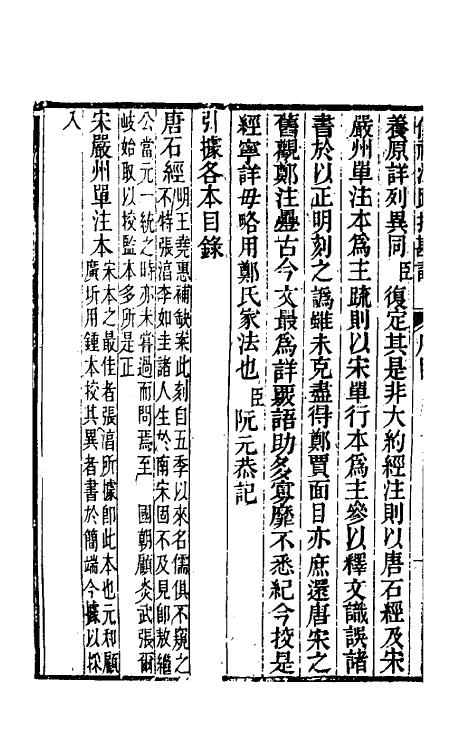 養原詳列異同臣復定其是非大約經注則以唐石經及宋
嚴州單注本爲主疏則以宋單行本爲主參以釋文識誤諸
書於以正明刻之譌雖未克盡得鄭賈面目亦庶還唐宋之
舊觀鄭注疊古今文最爲詳覈語助多寡靡不悉紀今校是
經寧詳毋略用鄭氏家法也臣阮元恭記
引據各本目錄
唐石經
明王堯惠補缺案此刻自五季以來名儒俱不窺之
不特張淳李如圭諸人生於南宋固不及見卽敖繼
公當元一統之時亦未嘗過而問焉至國朝顧炎武張爾
岐始取以校監本多所是正
宋嚴州單注本
宋本之最佳者張淳所據卽此本也元和顧
廣圻用鍾本校其異者書於簡端今據以採
入